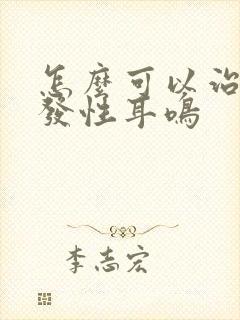 怎麼可以治
發性耳鳴
李志宏